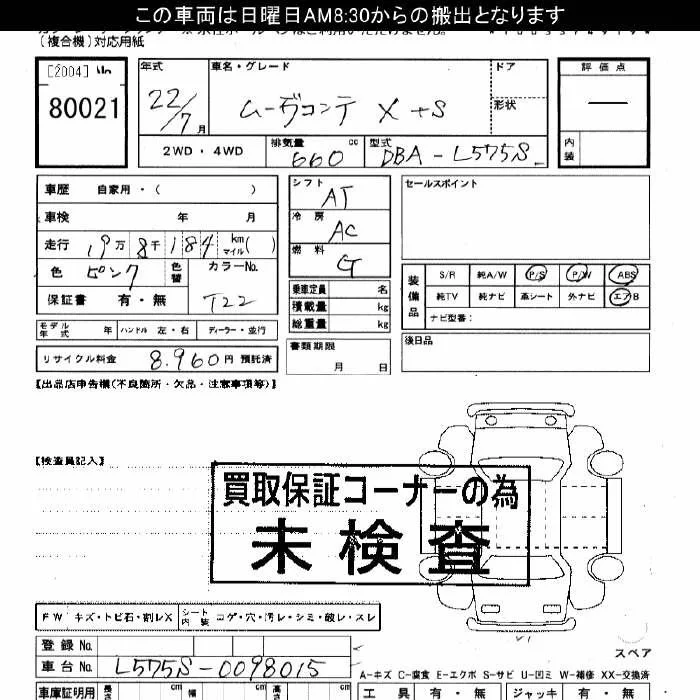 この車両は日曜日AM8:30からの搬出となります
(複合機)対応用紙
[2004]
80021
年式 車名・グレード ドア 評価点
22/7月 ムーヴコンテ X+S 形状 —
内装
2WD・4WD 排気量 660 cc 型式 DBA-L575S
車歴 自家用・( )
車検 年 月
走行 19万8千184 km マイル( )
色 ピンク 色替 カラーNo. T22
保証書 有・無
シフト AT
冷房 AC
燃料 G
乗車定員 名
積載量 kg
総重量 kg
セールスポイント
装備品 S/R 純A/W P/S P/W ABS
純TV 純ナビ 革シート 外ナビ エアB
ナビ型番:
モデル年式 年 ハンドル 左・右 ディーラー・並行
書類期限 月 日
後日品
リサイクル料金 8.960円 預託済
【出品店申告欄(不良箇所・欠品・注意事項等)】
【検査員記入】
買取保証コーナーの為
未検査
FW キズ・トビ石・割レX シート内装 コゲ・穴・汚レ・シミ・破レ・スレ
登録No.
車台No. L575S-0098015
スペア
A-キズ C-腐食 E-エクボ S-サビ U-凹ミ W-補修 XX-交換済
車庫証明用 長さ cm 幅 cm 高さ cm
工具 有・無 ジャッキ 有・無